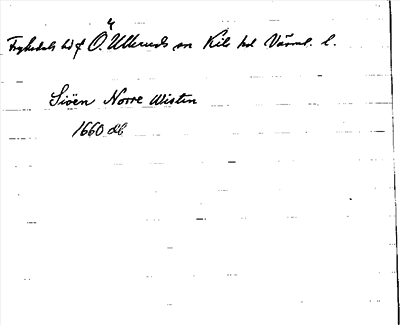 Fryksdals hd f Ö. Ullerud sn Kils hd Värml. l.
Siöen Norre Wisten
1660 db